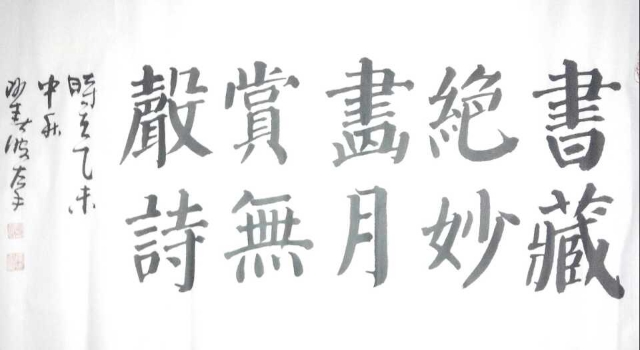 書藏
絕妙
畫月
賞無
聲詩
時在乙未
中秋
波